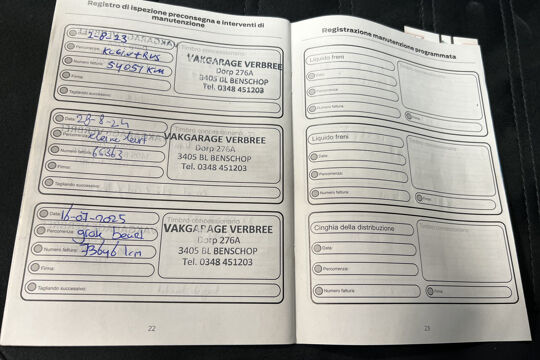 Registro di ispezione preconsegna e interventi di
manutenzione
Data: 7-8-23
Percorrenza:
Numero fattura: 54057 km
Firma:
Tagliando successivo:
VAKGARAGE VERBREE
Dorp 276A
3405 BL BENSCHOP
Tel. 0348 451203
Data: 28-8-24
Percorrenza: kleine beurt
Numero fattura: 66363
Firma:
Tagliando successivo:
Timbro concessionario
VAKGARAGE VERBREE
Dorp 276A
3405 BL BENSCHOP
Tel. 0348 451203
Data: 16-07-2025
Percorrenza: grote beurt
Numero fattura: 73646 km
Firma:
Tagliando successivo:
Timbro concessionario
VAKGARAGE VERBREE
Dorp 276A
3405 BL BENSCHOP
Tel. 0348 451203
22
Registrazione manutenzione programmata
Liquido freni
Data:
Percorrenza:
Numero fattura:
Liquido freni
Data:
Percorrenza:
Numero fattura:
Firma:
Cinghia della distribuzione
Data:
Percorrenza:
Numero fattura:
Firma:
23